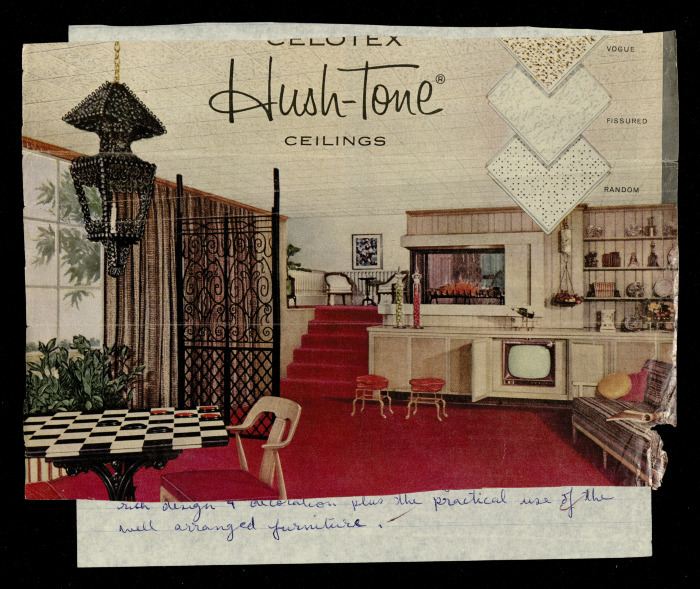 CELOTEX
Hush-Tone®
CEILINGS
VOGUE
FISSURED
RANDOM
rich design & decoration plus the practical use of the
well arranged furniture.